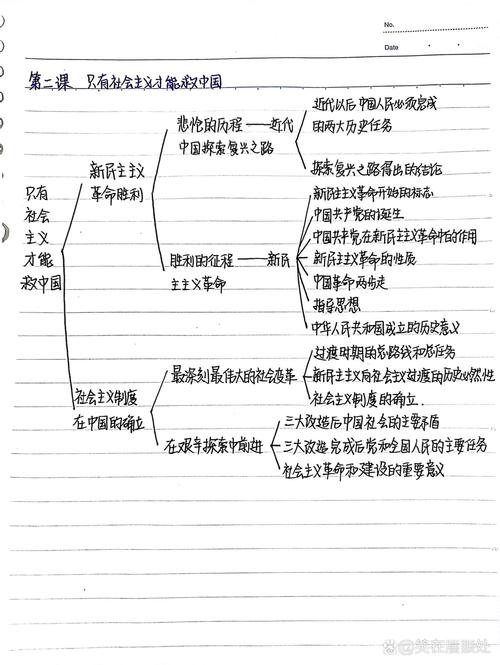 No.
Date
第二课 只有社会主义才能救中国
近代以后中国人民必须完成
的两大历史任务
悲怆的历程——近代
中国探索复兴之路
探索复兴之路得出的结论
新民主主义
革命胜利
新民主主义革命开始的标志
中国共产党的诞生
中国共产党在新民主主义革命中的作用
胜利的征程——新民
主主义革命
新民主主义革命的性质
中国革命两步走
指导思想
中华人民共和国成立的历史意义
只有
社会
主义
才能
救中国
过渡时期的总路线和总任务
最深刻最伟大的社会变革
新民主主义向社会主义过渡的历史必然性
社会主义制度的确立.
社会主义制度
在中国的确立
三大改造后中国社会的主要矛盾
在艰辛探索中前进
三大改造完成后党和全国人民的主要任务
社会主义革命和建设的重要意义